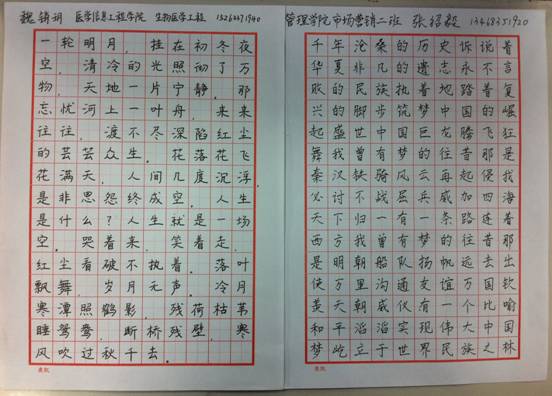 魏锦玥 医学信息工程学院 生物医学工程
一轮明月，挂在初冬夜
空，清冷的光照彻了万
物，天地一片宁静。那
忘忧河上一叶舟，来来
往往，渡不尽深陷红尘
的芸芸众生。花落花飞
花满天，人间几度沉浮，
是非恩怨终成空，人生
是什么？人生就是一场
空，哭着来，笑着走，
红尘看破不执着。落叶
飘舞，岁月无声。冷月
寒潭照鹤影，残荷枯苇
睡鸳鸯，断桥残壁，寒
风吹过秋千去。
管理学院市场营销二班 张绍毅 13468351920
千年沧桑的历史诉说着
华夏非凡的遗志永不言
败的民族执着地踏着复
兴的脚步筑梦中国的崛
起盛世中国巨龙腾飞狂
舞我曾有梦的往昔那是
秦汉铁骑风云再起侵我
必讨不战屈兵威加四海
天下归一有一条路连着
西方我曾有梦的往昔那
是明朝船队扬帆远去出
使万里沟通友谊万国钦
羡天朝威仪有一个比喻
和平滔滔实现伟大中国
梦屹立于世界民族之林